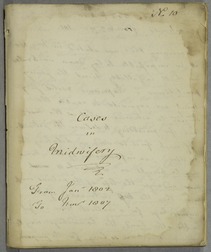 No. 10
Cases
in
Midwifery
From Jany. 1802
To Novr. 1807